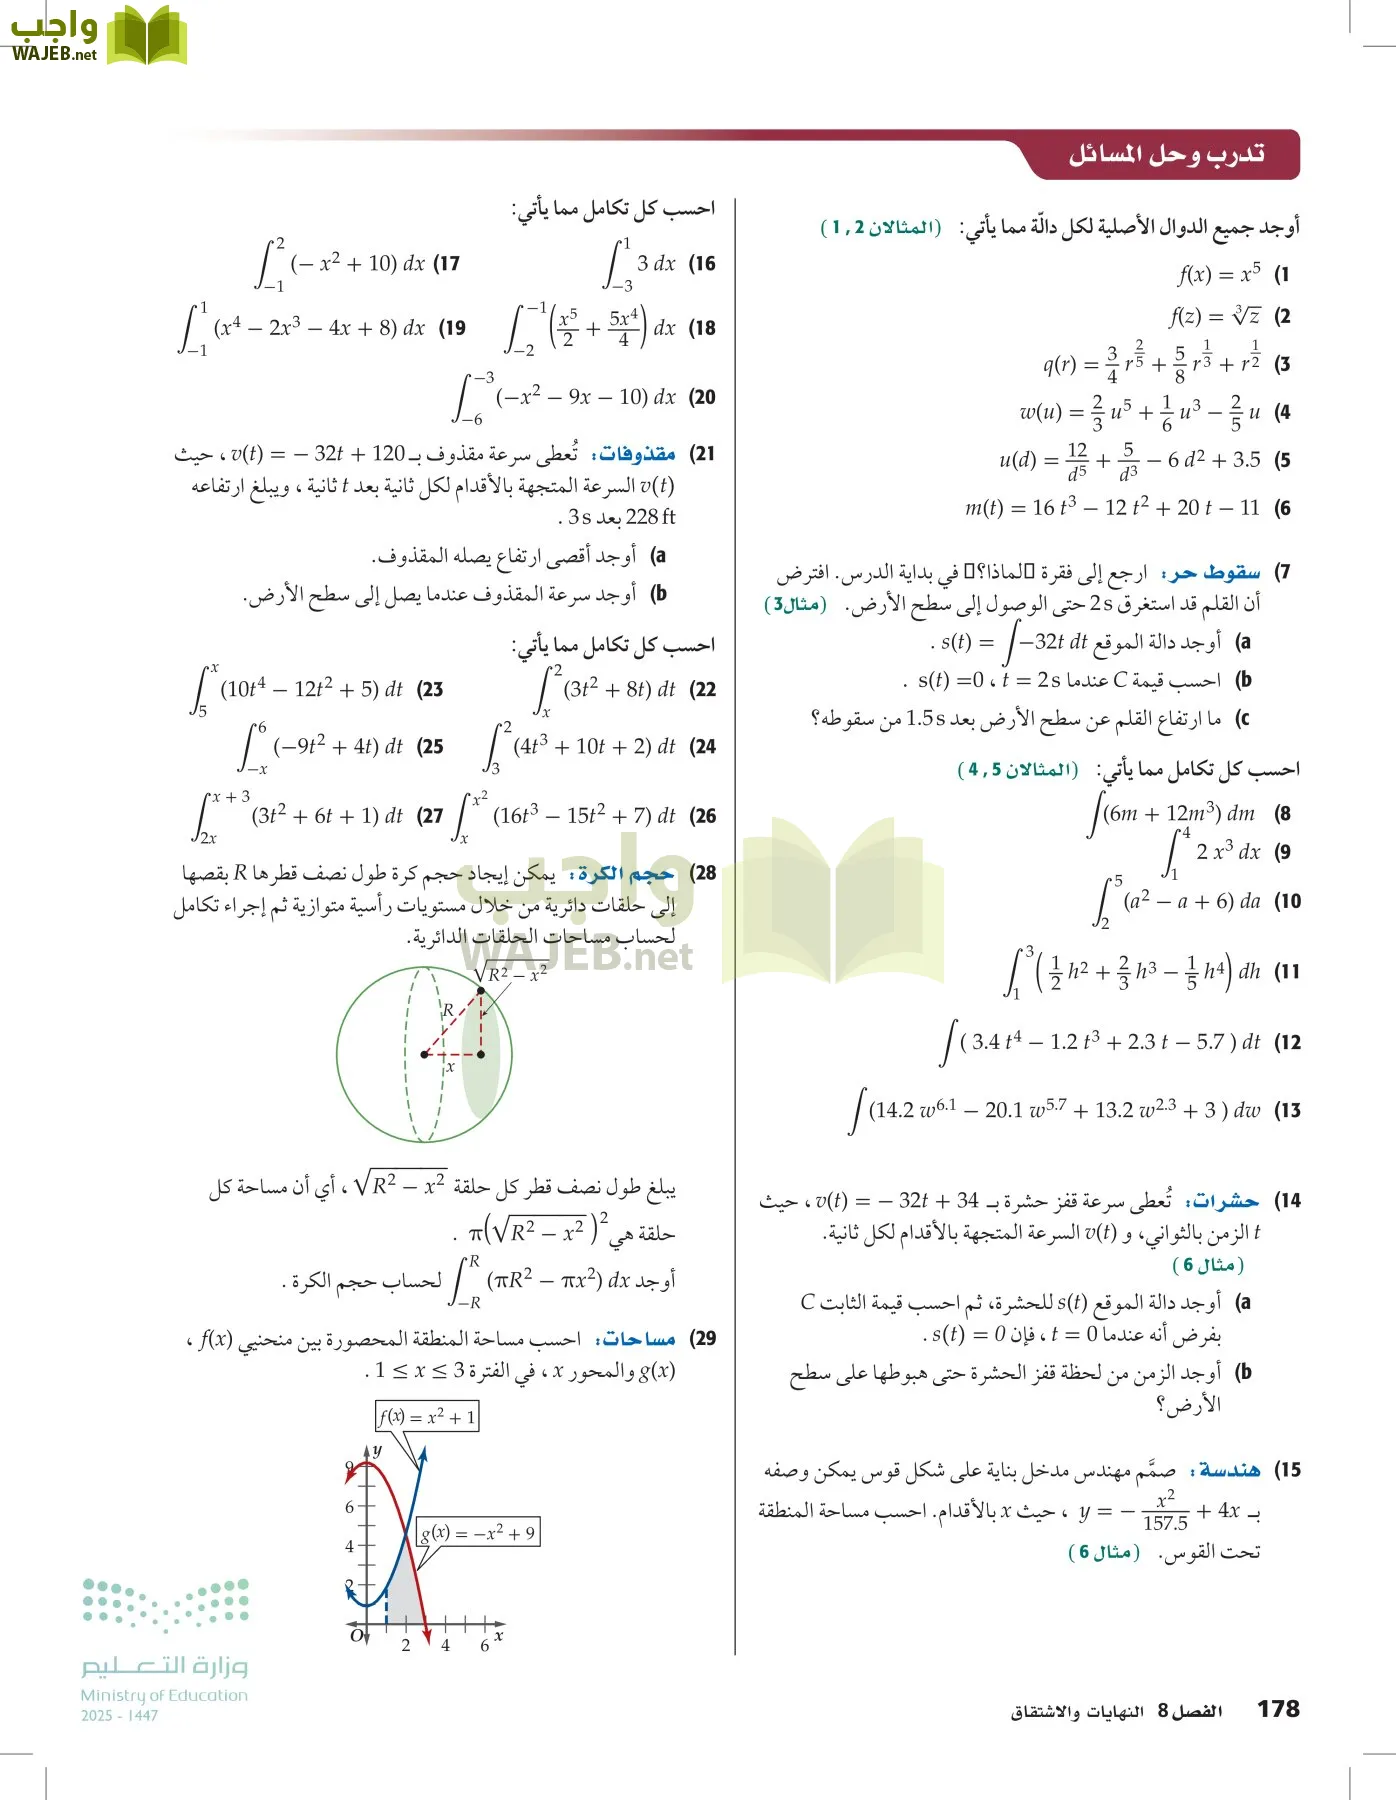 واجب
WAJEB.net
تدرب وحل المسائل
أوجد جميع الدوال الأصلية لكل دالّة مما يأتي: (المثالان 2 , 1)
1) f(x) = x⁵
2) f(z) = ∛z
3) q(r) = 3/4 r^(2/5) + 5/8 r^(1/3) + r^(1/2)
4) w(u) = 2/3 u⁵ + 1/6 u³ − 2/5 u
5) u(d) = 12/d⁵ + 5/d³ − 6 d² + 3.5
6) m(t) = 16 t³ − 12 t² + 20 t − 11
7) سقوط حر: ارجع إلى فقرة ▯لماذا؟▯ في بداية الدرس. افترض
أن القلم قد استغرق 2 s حتى الوصول إلى سطح الأرض. (مثال3)
a) أوجد دالة الموقع s(t) = ∫−32t dt .
b) احسب قيمة C عندما t = 2 s ، s(t) =0 .
c) ما ارتفاع القلم عن سطح الأرض بعد 1.5 s من سقوطه؟
احسب كل تكامل مما يأتي: (المثالان 5 , 4)
8) ∫(6m + 12m³) dm
9) ∫₁⁴ 2 x³ dx
10) ∫₂⁵ (a² − a + 6) da
11) ∫₁³ (1/2 h² + 2/3 h³ − 1/5 h⁴) dh
12) ∫( 3.4 t⁴ − 1.2 t³ + 2.3 t − 5.7 ) dt
13) ∫(14.2 w^6.1 − 20.1 w^5.7 + 13.2 w^2.3 + 3 ) dw
14) حشرات: تُعطى سرعة قفز حشرة بـ v(t) = − 32t + 34 ، حيث
t الزمن بالثواني، و v(t) السرعة المتجهة بالأقدام لكل ثانية.
(مثال 6)
a) أوجد دالة الموقع s(t) للحشرة، ثم احسب قيمة الثابت C
بفرض أنه عندما t = 0 ، فإن s(t) = 0 .
b) أوجد الزمن من لحظة قفز الحشرة حتى هبوطها على سطح
الأرض؟
15) هندسة: صمَّم مهندس مدخل بناية على شكل قوس يمكن وصفه
بـ y = − x²/157.5 + 4x ، حيث x بالأقدام. احسب مساحة المنطقة
تحت القوس. (مثال 6)
احسب كل تكامل مما يأتي:
16) ∫₋₃¹ 3 dx
17) ∫₋₁² (− x² + 10) dx
18) ∫₋₂⁻¹ (x⁵/2 + 5x⁴/4) dx
19) ∫₋₁¹ (x⁴ − 2x³ − 4x + 8) dx
20) ∫₋₆⁻³ (−x² − 9x − 10) dx
21) مقذوفات: تُعطى سرعة مقذوف بـ v(t) = − 32t + 120 ، حيث
v(t) السرعة المتجهة بالأقدام لكل ثانية بعد t ثانية ، ويبلغ ارتفاعه
228 ft بعد 3 s .
a) أوجد أقصى ارتفاع يصله المقذوف.
b) أوجد سرعة المقذوف عندما يصل إلى سطح الأرض.
احسب كل تكامل مما يأتي:
22) ∫ₓ² (3t² + 8t) dt
23) ∫₅ˣ (10t⁴ − 12t² + 5) dt
24) ∫₃² (4t³ + 10t + 2) dt
25) ∫₋ₓ⁶ (−9t² + 4t) dt
26) ∫ₓ^(x²) (16t³ − 15t² + 7) dt
27) ∫₂ₓ^(x + 3) (3t² + 6t + 1) dt
28) حجم الكرة: يمكن إيجاد حجم كرة طول نصف قطرها R بقصها
إلى حلقات دائرية من خلال مستويات رأسية متوازية ثم إجراء تكامل
لحساب مساحات الحلقات الدائرية.
√(R² − x²)
R
x
يبلغ طول نصف قطر كل حلقة √(R² − x²) ، أي أن مساحة كل
حلقة هي π(√(R² − x²))² .
أوجد ∫₋R^R (πR² − πx²) dx لحساب حجم الكرة .
29) مساحات: احسب مساحة المنطقة المحصورة بين منحنيي f(x) ،
g(x) والمحور x ، في الفترة 1 ≤ x ≤ 3 .
f(x) = x² + 1
y
9
6
g(x) = −x² + 9
4
2
O 2 4 6 x
واجب
WAJEB.net
وزارة التعليم
Ministry of Education
2025 - 1447
178 الفصل 8 النهايات والاشتقاق